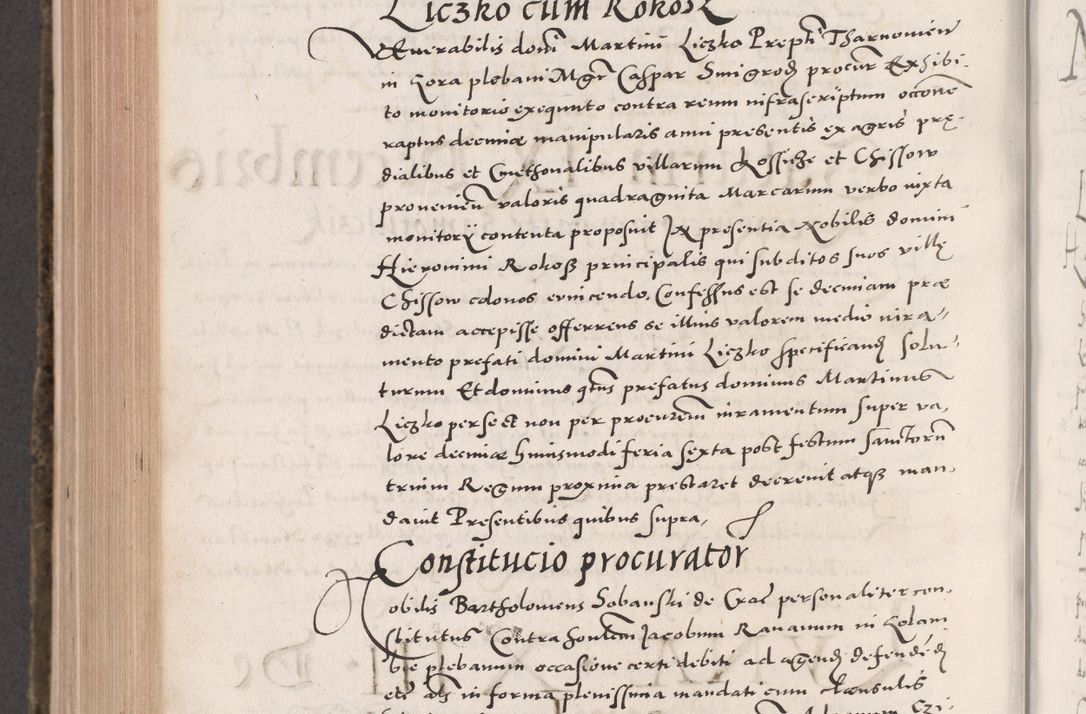 Liczko cum Rokosz
Venerabilis domi Martini Liczko Prepti Tharnovien
in Gora plebani Mgr Caspar Smigrod procur Exhibi-
to monitorio exequuto contra reum infrascriptum occone
raptus decimæ manipularis anni presentis ex agris prę-
dialibus et Cmethonalibus villarum Rossicze et Chissow
provenien valoris quadraginta Marcarum verbo iuxta
monitorÿ contenta proposuit In presentia Nobilis domini
Hieronimi Rokosz principalis qui subditos suos villę
Chissow colonos evincendo, Confessus est se decimam præ
dictam accepisse offerrens se illius valorem medio iura-
mento prefati domini Martini Liczko specificand solu-
turum Et dominus quus prefatus dominus Martinus
Liczko per se et non per procurem iuramentum super va-
lore decimæ huiusmodi feria sexta post festum Sanctorum
trium Regum proxima prestaret decrevit atqz man-
davit Presentibus quibus supra,
Constitucio procurator
Nobilis Bartholomeus Sobanski de Crac personaliter con-
stitutus Contra honlem Jacobum Ravanum in Golam
bie plebanum occasione certi debiti ad agend defended
etc als in forma plenissima mandati cum clausulis